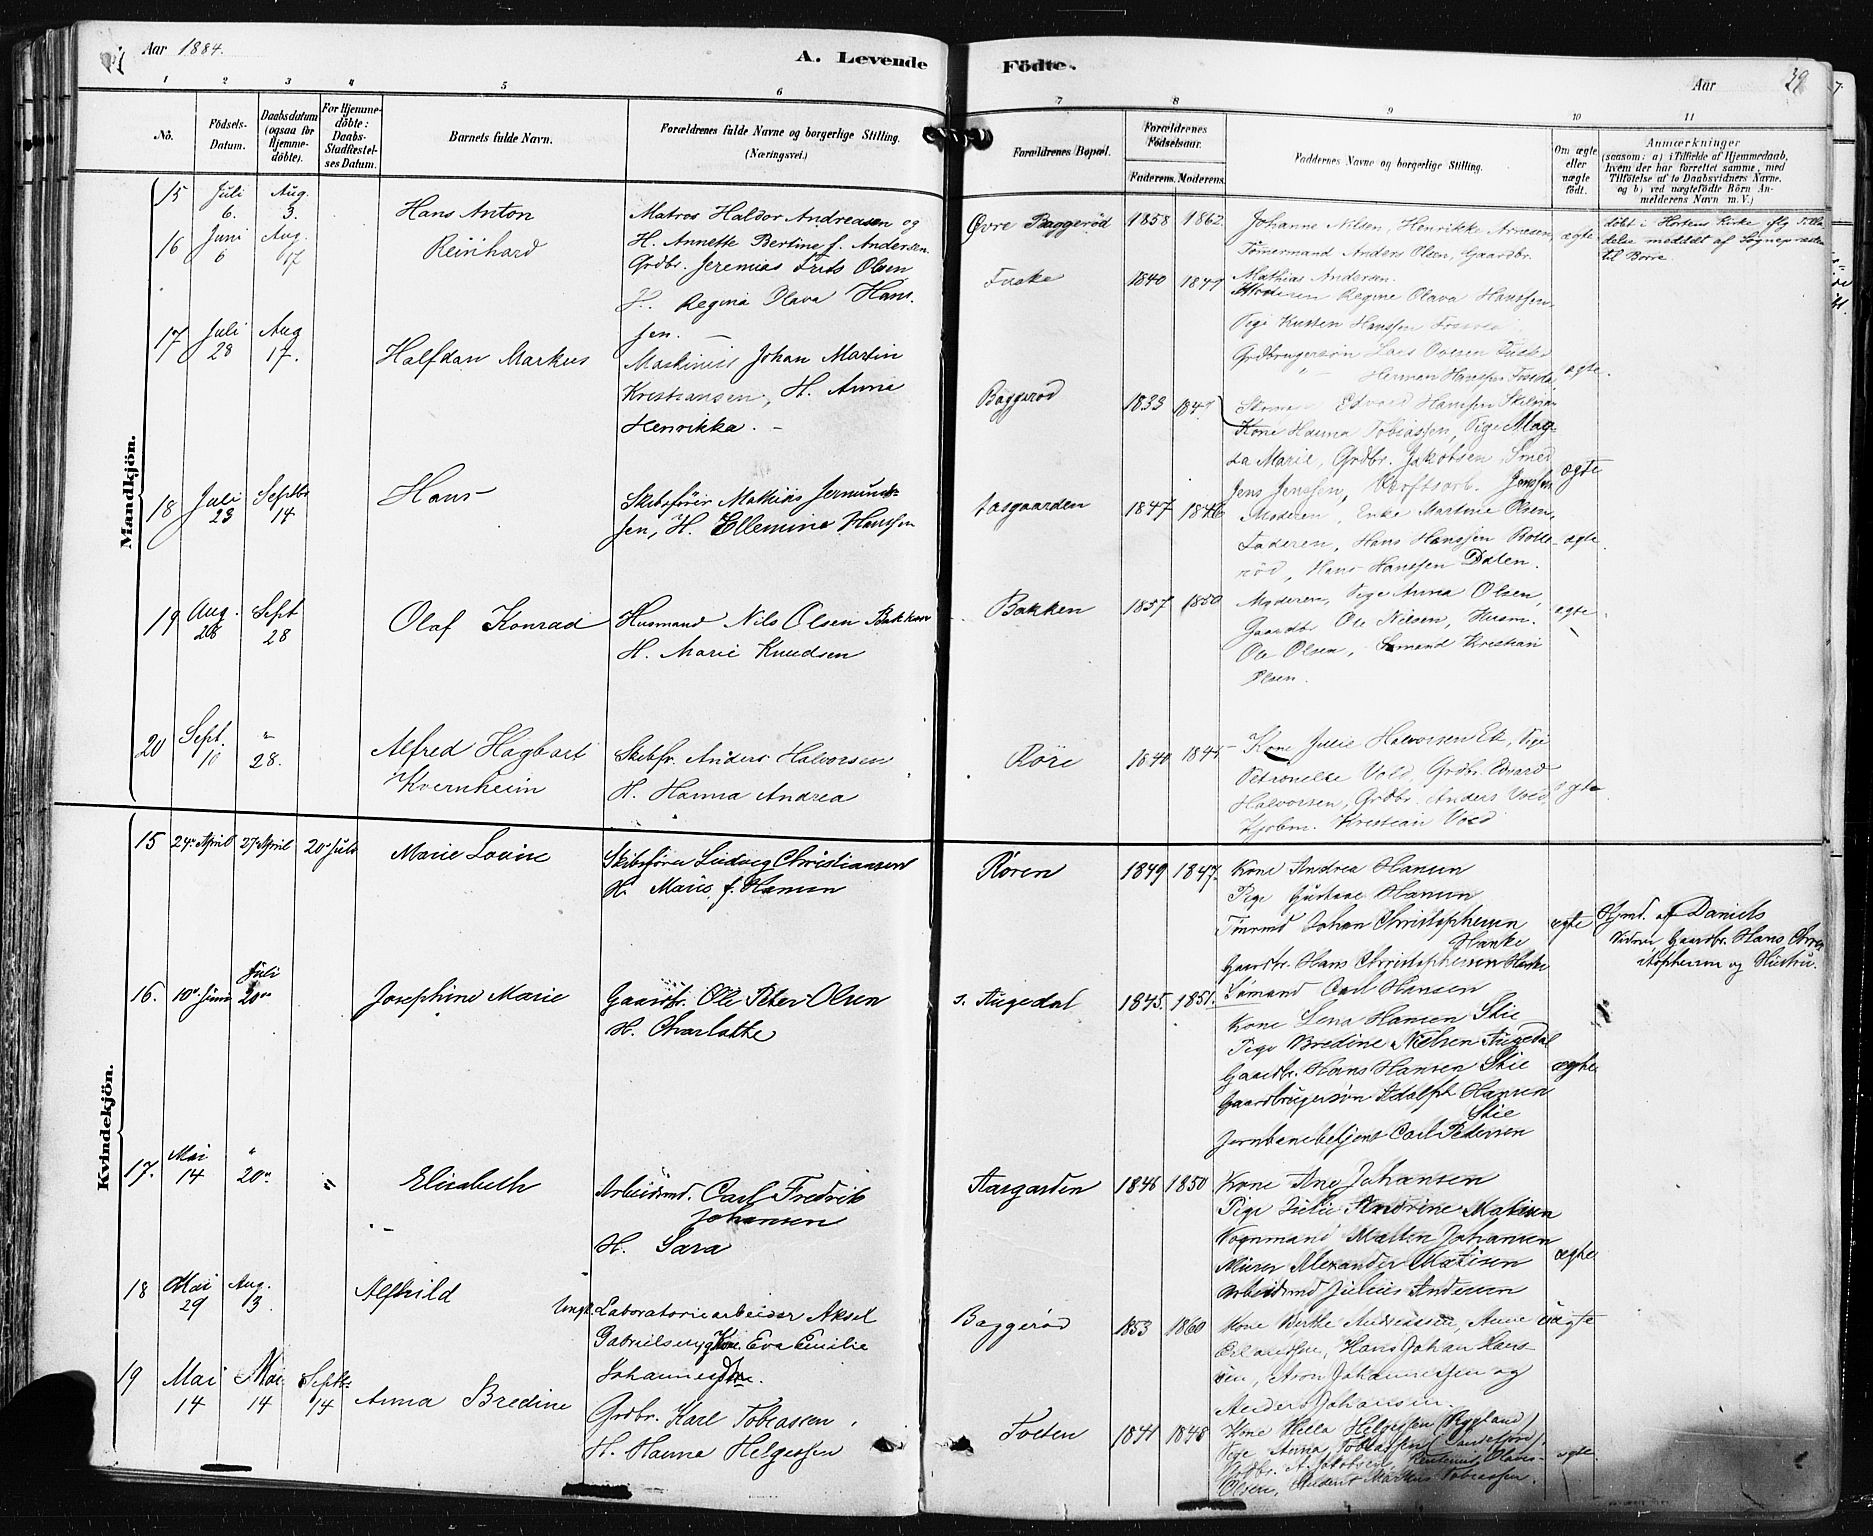 Aar 1884.
A. Levende
Födte.
Aar
39
1 2 3 4 5 6 7 8 9 10 11
No.
Födsels-
Datum.
Daabsdatum
(ogsaa for
Hjemme-
döbte).
For Hjemme-
döbte:
Daabs-
Stadfæstel-
ses Datum.
Barnets fulde Navn.
Forældrenes fulde Navne og borgerlige Stilling.
(Næringsvei.)
Forældrenes Bopæl.
Forældrenes
Födselsaar.
Faderens. Moderens.
Faddernes Navne og borgerlige Stilling.
Om ægte
eller
uægte
födt.
Anmærkninger
(saasom: a) i Tilfælde af Hjemmedaab,
hvem der har forrettet samme, med
Tilföielse af to Daabsvidners Navne,
og b) ved uægtefödte Börn An-
melderens Navn m. V.)
Mandkjön.
15 Juli 6. Aug. 3.
Hans Anton
Matros Haldor Andreasen og
H. Annette Bertine f. Andersen
Øvre Baggerød 1858 1862
Johanne Nilsen, Henrikke Arnesen,
Tømermand Anders Olsen, Gaardbr.
Mathias Andersen.
ægte
døbt i Hortens Kirke iflg. Tilla
delse meddelt af Sognepræsten
til Borre.
16 Juni 6 Aug. 17
Reinhard
Grdbr. Jeremias Frits Olsen
H. Regina Olava Hans
sen.
1840 1849
Moderen Regine Olava Hanssen,
Pige Hanssen
Grdbrugersøn Lars Ovesen
Herman Hanssen
ægte.
17 Juli 28 Aug 17.
Halfdan Markus
Maskinist Johan Martin
Kristiansen, H. Anna
Henrikka. -
Baggerød 1833
Edvard Hanssen
Kone Hanna Tobiassen, Pige Mag-
da Marie, Grdbr. Jakobsen, Smed
Jens Jenssen, Værftsarb. Jenssen
ægte
18 Juli 23 Septbr 14
Hans
Skibsfører Mathias Jermund-
sen, H. Ellemine Hanssen
Aasgaarden 1847 1846
Moderen, Enke Martine Olsen,
Faderen, Hans Hanssen Rolle-
rød, Hans Hanssen Dalen.
ægte.
19 Aug. 28 Sept 28
Olaf Konrad
Husmand Nils Olsen Bakken
H. Marie Knudsen
Bakken 1857 1850
Moderen, Pige Anna Olsen,
Gaardbr Ole Nilsen, Husm.
Ole Olsen, Sømand Kristian
Olsen.
ægte.
20 Sept. 10 " 28.
Alfred Hagbart
Kvernheim
Skibsfr. Anders Halvorsen
H. Hanna Andrea
Röre 1840 1845
Kone Julie Halvorsen Ek, Pige
Petronelle Vold, Grdbr. Edvard
Halvorsen, Grdbr. Anders Vold,
Kjøbm. Kristian Vold
ægte
Kvindekjön.
15 24de April 27de April 20de Juli
Marie Lovise
Skibsfører Ludvig Christiansen
H. Marie f. Hansen
Røren 1849 1847.
Kone Andrea Hansen
Pige Gustava Hansen
Tmrmd Johan Christophersen
Hanke
Gaardbr. Hans Christophersen Hanke
Sømand Carl Hansen
ægte
Hjmd. af Daniels
Vidner Gaardbr. Hans Chri
stophersen og Hustru.
16. 10de Juni Juli 20de
Josephine Marie
Gaardbr. Ole Peter Olsen
H. Charlotte
Augedal 1845. 1851.
Kone Lena Hansen Skie
Pige Bredine Nielsen Augedal
Gaardbr. Hans Hansen Skie
Gaardbrugersøn Adolph Hansen
Skie
Jernbanebetjent Carl Pedersen
ægte
17. Mai 14 " 20de "
Elisabeth
Arbeidsmd. Carl Fredrik
Johansen
H. Sara
Aasgarden 1846 1850
Kone Ane Johansen
Pige Julie Andrine Mathisen
Vognmand Martin Johansen
Murer Alexander Matisen
Arbeidsmd Julius Andersen
ægte
18 Mai 29 Aug. 13
Alfhild
Ungk. Laboratoriearbeider Aksel
Gabrielsen, og Kone Eva Emilie
Johannesdtr.
Baggerød 1853 1860
Kone Berthe Andreassen, Anne
Erlandsen, Hans Johan Hans-
sen, Aron Johannessen og
Anders Johansen.
uægte
19 Mai 14 Mai 14 Septbr 14
Anna Bredine
Grdbr. Karl Tobiassen,
H. Hanna Helgessen
Toften 1841 1848
Kone Hella Helgessen (Rygland),
Pige Anna Tobiassen (Sandefjord),
Grdbr. A. Jakobsen, Rentenist Olaus
Olsen, Student Markus Tobiassen.
ægte.